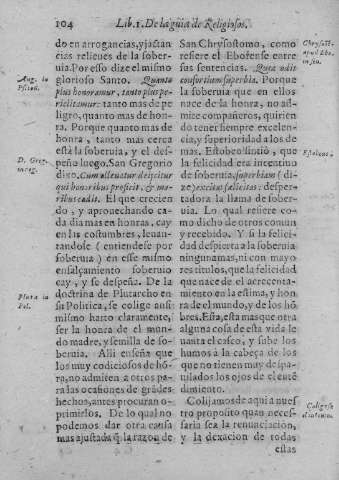 104 Lib. I. De la guia de Religiosos.
do en arrogancias, y jactancias
relieues de la soberuia.
Por esso dize el mismo
glorioso Santo. Quanto
plus honoramur, tanto plus periclitamur:
tanto mas de peligro,
quanto mas de honra.
Porque quanto mas de
honra, tanto mas cerca
està la soberuia, y el despeño
luego. San Gregorio
dixo. Cum alleuatur deijcitur
qui honoribus proficit, & moribus
cadit. El que creciendo
, y aprouechando cada
dia mas en honras, cay
en las costumbres, leuantandose
( entiendese por
soberuia ) en esse mismo
ensalçamiento soberuio
cay, y se despeña. De la
doctrina de Plutarcho en
su Politica, se colige assi
mismo harto claramente,
ser la honra de el mundo
madre, y semilla de soberuia.
Alli enseña que
los muy codiciosos de hõra,
no admiten a otros para
las ocasiones de grãdes
hechos, antes procuran oprimirlos.
De lo qual no
podemos dar otra causa
mas ajustada q̃ la razon de
San Chrysostomo, como
refiere el Eborense entre
sus sentencias. Quia odit
consortium superbia. Porque
la soberuia que en ellos
nace de la honra, no admite
compañeros, quiriendo
tener siempre excelencia,
y superioridad a los demas.
Estobeo sintiò, que
la felicidad era incentiuo
de soberuia, superbiam ( dize)
excitat fœlicitas: despertadora
la llama de soberuia.
Lo qual refiere como
dicho de otros comun
y recebido. Y si la felicidad
despierta a la soberuia
ningunas mas, ni con mayores
titulos, que la felicidad
que nace de el acrecentamiento
en la estima, y honra
de el mundo, y de los hõbres.
Esta, esta mas que otra
alguna cosa de esta vida leuanta
el casco, y sube los
humos à la cabeça de los
que no tienen muy despauilados
los ojos de el entẽdimiento.
Colijamos de aqui a nuestro
proposito quan necessaria
sea la renunciacion,
y la dexacion de todas
estas
Aug. in
D. Greg.
Pol.
Estobeo,